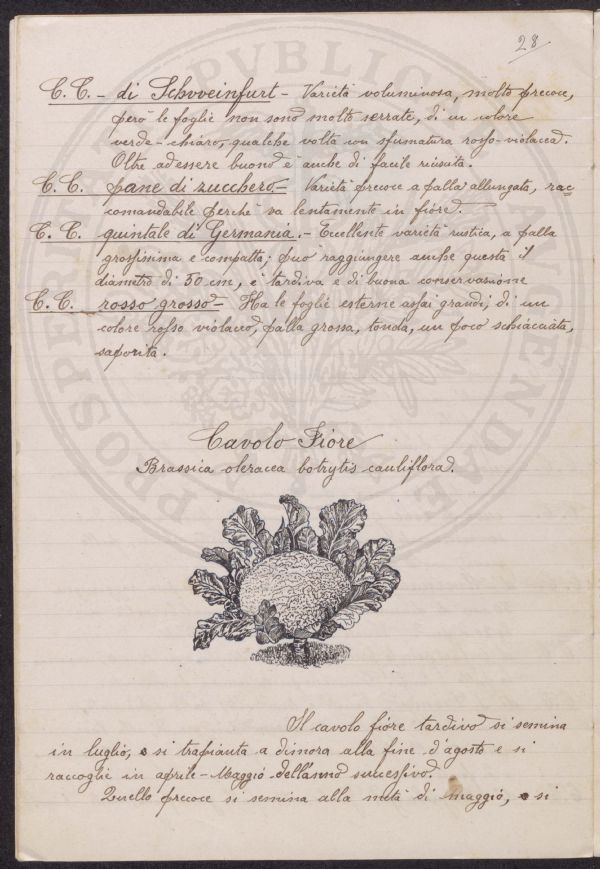 28
C. C. - di Schvveinfurt - Varietà voluminosa, molto precoce,
però le foglie non sono molto serrate, di un colore
verde-chiaro, qualche volta con sfumatura rosso-violacea.
Oltre ad essere buono è anche di facile riuscita.
C. C. pane di zucchero - Varietà precoce a palla allungata, rac=
comandabile perchè va lentamente in fiore.
C. C. quintale di Germania. - Eccellente varietà rustica, a palla
grossissima e compatta; può raggiungere anche questa il
diametro di 50 cm, è tardiva e di buona conservazione
C. C. rosso grosso - Ha le foglie esterne assai grandi, di un
colore rosso violaceo, palla grossa, tonda, un poco schiacciata,
saporita.
Cavolo Fiore
Brassica oleracea botrytis cauliflora.
Il cavolo fiore tardivo si semina
in luglio, e si trapianta a dimora alla fine d'agosto e si
raccoglie in aprile - Maggio dell'anno successivo.
Quello precoce si semina alla metà di maggio, e si